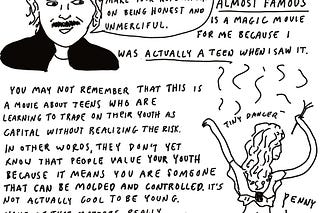 MAKE YOUR REPUTATION
ON BEING HONEST AND
UNMERCIFUL.
ALMOST FAMOUS
IS A MAGIC MOVIE
FOR ME BECAUSE I
WAS ACTUALLY A TEEN WHEN I SAW IT.
YOU MAY NOT REMEMBER THAT THIS IS
A MOVIE ABOUT TEENS WHO ARE
LEARNING TO TRADE ON THEIR YOUTH AS
CAPITAL WITHOUT REALIZING THE RISK.
IN OTHER WORDS, THEY DON'T YET
KNOW THAT PEOPLE VALUE YOUR YOUTH
BECAUSE IT MEANS YOU ARE SOMEONE
THAT CAN BE MOLDED AND CONTROLLED. IT'S
NOT ACTUALLY COOL TO BE YOUNG.
TINY DANCER
PENNY